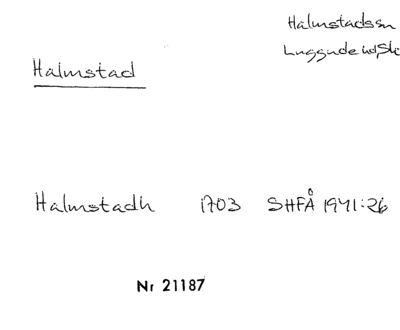 Halmstads sn
Luggude hd, Sk
Halmstad
Halmstadh 1703 SHFÅ 1941:26
Nr 21187